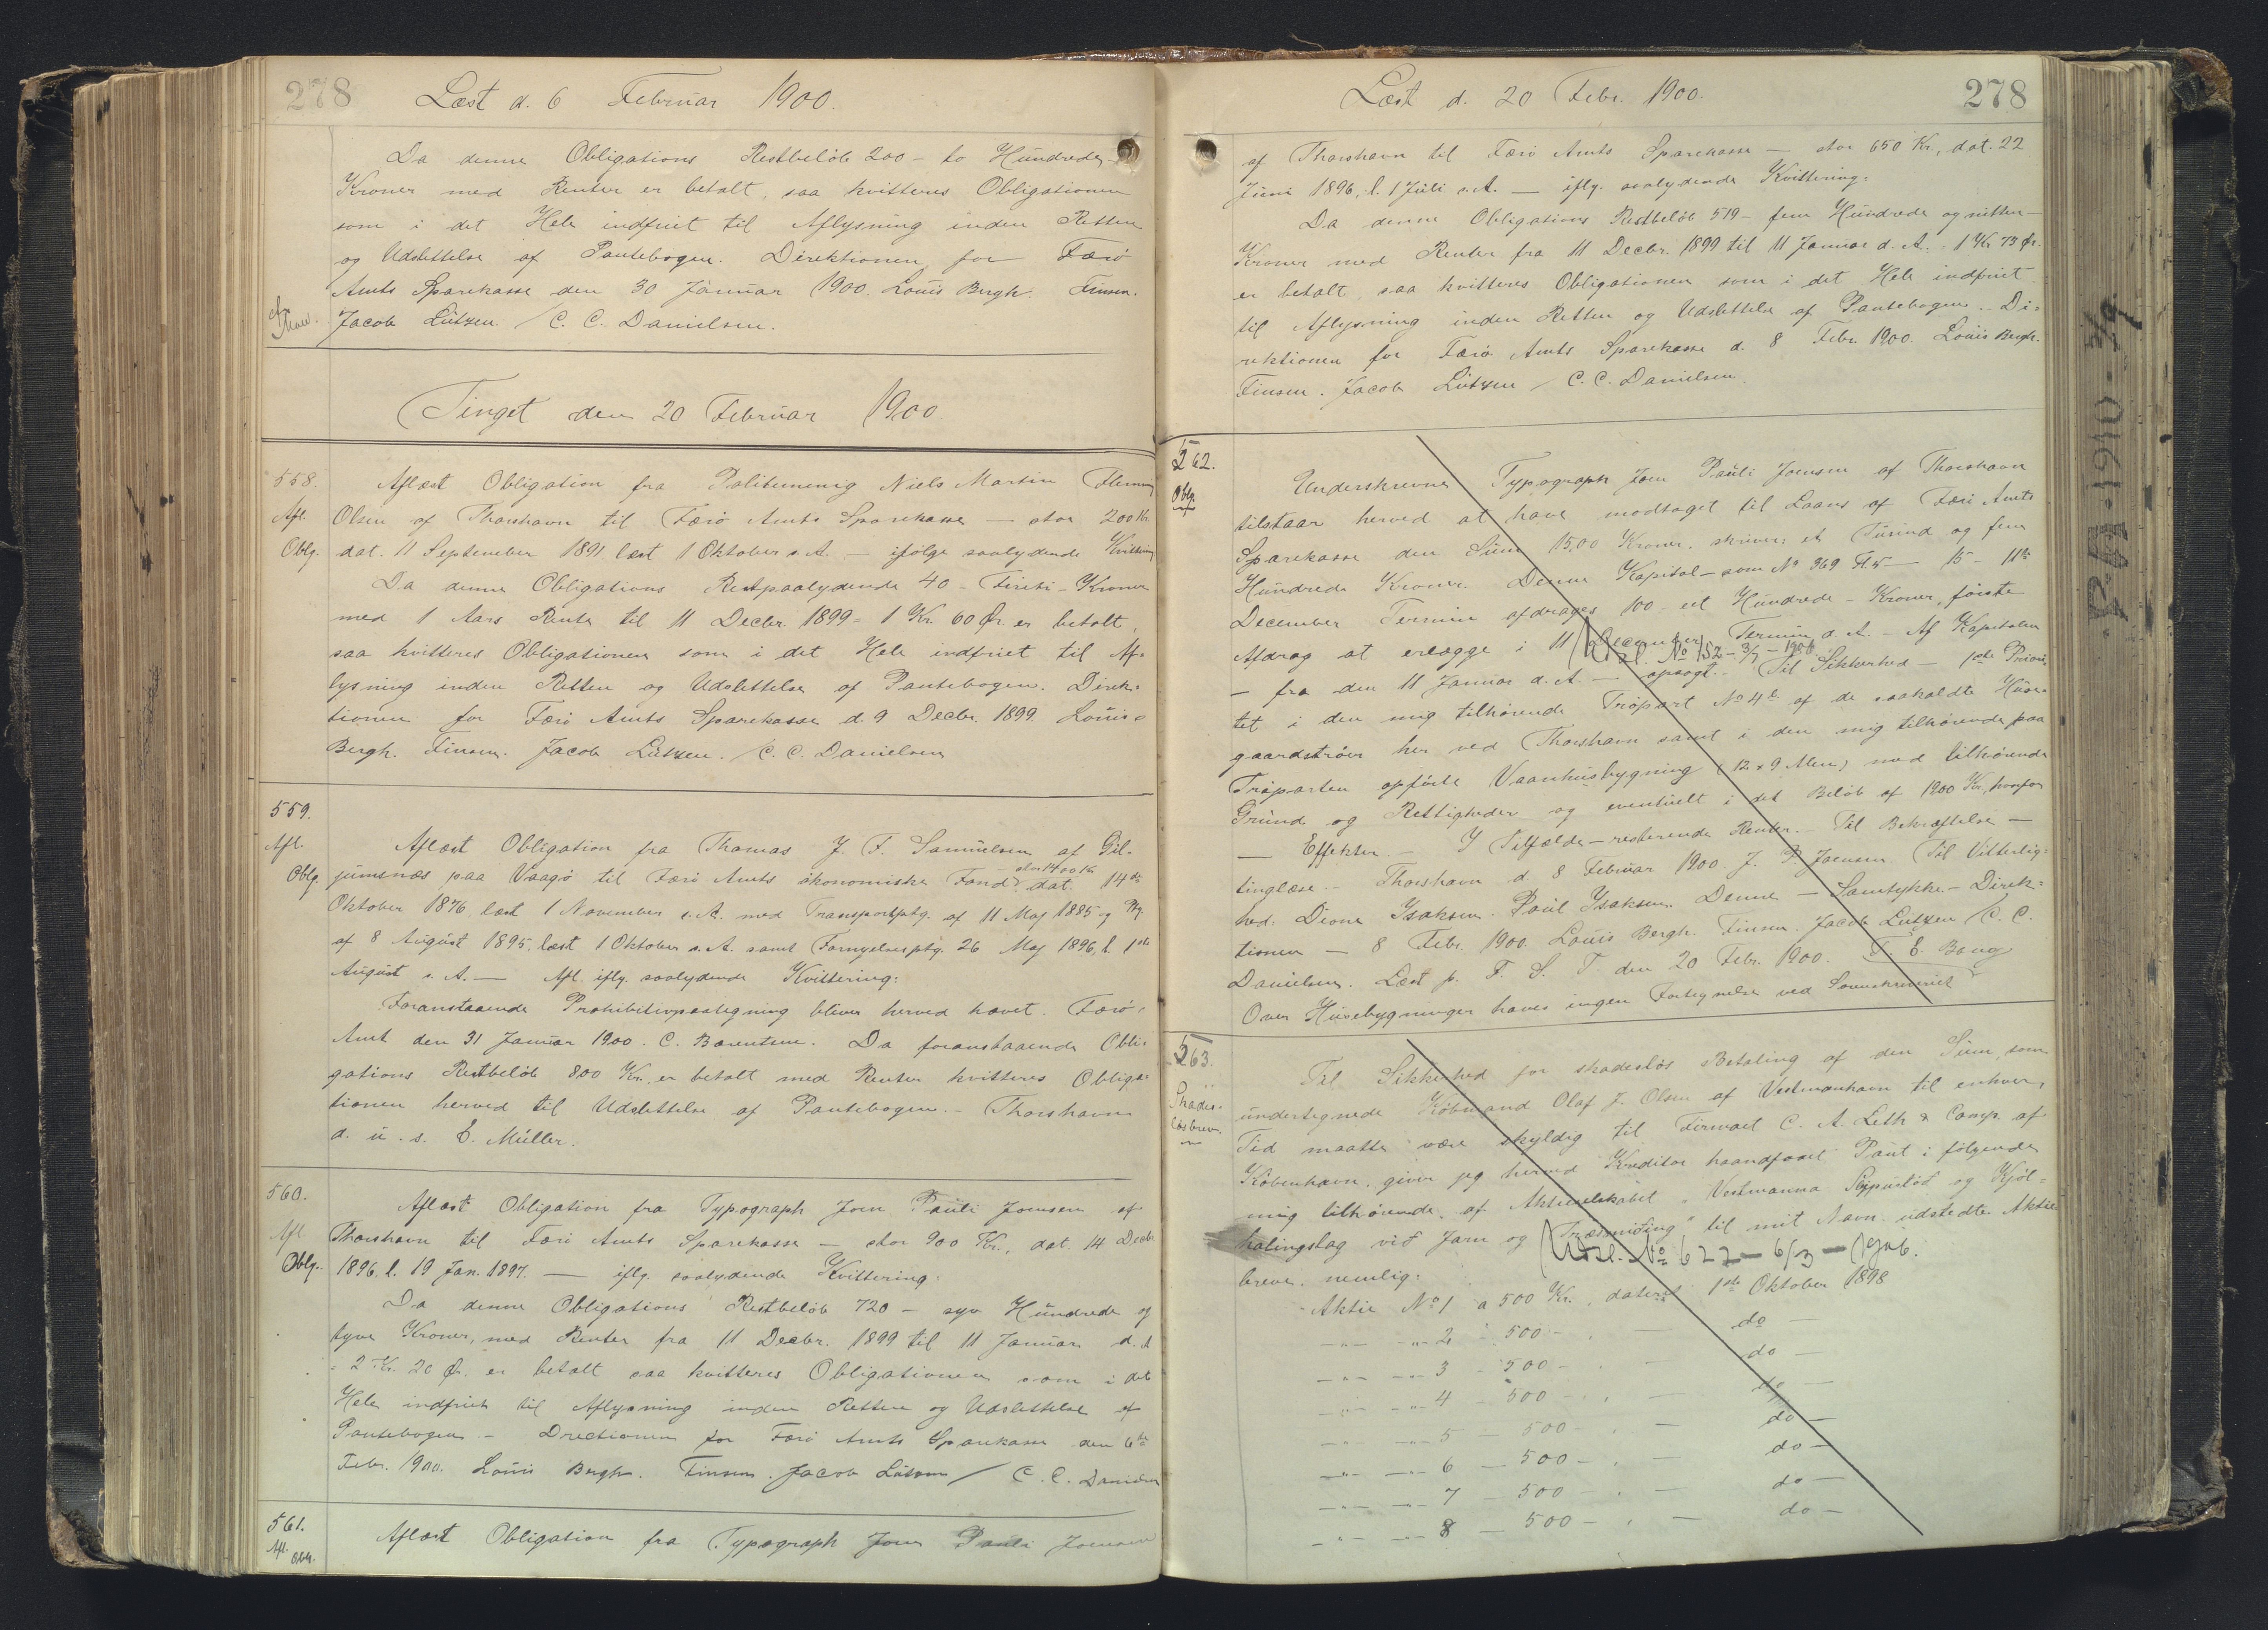 278 Læst d. 6 Februar 1900.
Da denne Obligations Restbeløb 200 - to Hundrede -
Kroner med Renter er betalt, saa kvitteres Obligationen
som i det Hele indfriet til Aflysning inden Retten
og Udslettelse af Pantebogen. Direktionen for Færø
Amts Sparekasse den 30 Januar 1900. Louis Bergh. Finsen.
Jacob Lützen. / C. C. Danielsen.
Tinget den 20 Februar 1900
558.
Afl.
Oblg.
Aflæst Obligation fra Politimenig Niels Martin Flemming
Olsen af Thorshavn til Færø Amts Sparekasse — stor 200 Kr.
dat. 11 September 1891 læst 1 Oktober s. A. — ifølge saalydende Kvittering
Da denne Obligations Restpaalydende 40 - Fireti - Kroner
med 1 Aars Rente til 11 Decbr. 1899 = 1 Kr. 60 Ør. er betalt,
saa kvitteres Obligationen som i det Hele indfriet til Af-
lysning inden Retten og Udslettelse af Pantebogen. Direk-
tionen for Færø Amts Sparekasse d. 9 Decbr. 1899. Louis
Bergh. Finsen. Jacob Lützen. / C. C. Danielsen
559.
Afl.
Oblg.
Aflæst Obligation fra Thomas J. F. Samuelsen af Gil-
jumsnæs paa Vaagø til Færø Amts økonomiske Fond - stor 1400 Kr. dat. 14de
Oktober 1876, læst 1 November s. A. med Transportptg. af 11 Maj 1885 og Ptg.
af 8 August 1895, læst 1 Oktober s. A. samt Fornyelsesptg. 26 Maj 1896, l. 1ste
August s. A. — Afl. iflg. saalydende Kvittering:
Foranstaaende Prohibitivpaategning bliver herved hævet. Færø
Amt den 31 Januar 1900. C. Bærentsen. Da foranstaaende Obli-
gations Restbeløb 800 Kr. er betalt med Renter kvitteres Obliga-
tionen herved til Udslettelse af Pantebogen. - Thorshavn
d. u. s. E. Müller.
560.
Afl.
Oblg.
Aflæst Obligation fra Typograph Joen Pauli Joensen af
Thorshavn til Færø Amts Sparekasse — stor 900 Kr., dat. 14 Decbr
1896, l. 19 Jan. 1897. — iflg. saalydende Kvittering:
Da denne Obligations Restbeløb 720 - syv Hundrede og
tyve Kroner, med Renter fra 11 Decbr. 1899 til 11 Januar d. A
= 2 Kr. 20 Ø. er betalt saa kvitteres Obligationen som i det
Hele indfriet til Aflysning inden Retten og Udslettelse af
Pantebogen. - Directionen for Færø Amts Sparekasse den 6te
Febr. 1900. Louis Bergh. Finsen. Jacob Lützen / C. C. Danielsen
561.
Afl. Oblg.
Aflæst Obligation fra Typograph Joen Pauli Joensen
Læst d. 20 Febr. 1900. 278
af Thorshavn til Færø Amts Sparekasse — stor 650 Kr., dat. 22
Juni 1896, l. 1 Juli s. A. — iflg. saalydende Kvittering:
Da denne Obligations Restbeløb 519 - fem Hundrede og nitten -
Kroner med Renter fra 11 Decbr. 1899 til 11 Januar d. A. = 1 Kr 73 Ør.
er betalt, saa kvitteres Obligationen som i det Hele indfriet
til Aflysning inden Retten og Udslettelse af Pantebogen. - Di-
rektionen for Færø Amts Sparekasse d. 8 Febr. 1900. Louis Bergh.
Finsen. Jacob Lützen / C. C. Danielsen.
562.
Oblg.
Underskrevne Typograph Joen Pauli Joensen af Thorshavn
tilstaar herved at have modtaget til Laans af Færø Amts
Sparekasse den Sum 1500 Kroner, skriver et Tusind og fem
Hundrede Kroner. Denne Kapital - som No 369 — 15 - 11te
December Termin afdrages 100 - eet Hundrede - Kroner, første
Afdrag at erlægge i 11 December Termin d. A. - Af Kapitalen
Udsl. No 152 - 3/7 - 1956
- fra den 11 Januar d. A. — opsagt. - Til Sikkerhed — 1ste Priori-
tet i den mig tilhørende Trøpart No 4b af de saakaldte Huse-
gaardstrøer her ved Thorshavn samt i den mig tilhørende paa
Trøparten opførte Vaanhusbygning (12 x 9 Alen) med tilhørende
Grund og Rettigheder og eventuelt i det Beløb af 1200 Kr., hvorfor
— Effekter - I Tilfælde - resterende Renter. - Til Bekræftelse —
tinglæse. - Thorshavn d. 8 Februar 1900. J. P. Joensen. Til Vitterlig-
hed. Dione Ysaksen. Poul Ysaksen. Denne — Samtykke. - Direk-
tionen — 8 Febr. 1900. Louis Bergh. Finsen. Jacob Lützen / C. C.
Danielsen. Læst p. F. S. T. den 20 Febr. 1900. T. E. Bang
Over Husebygninger haves ingen Fortegnelse ved Sorenskriveriet
563.
Skades-
løsbrev.
Til Sikkerhed for skadesløs Betaling af den Sum, som
undertegnede Købmand Olaf J. Olsen af Vestmanhavn til enhver
Tid maatte være skyldig til Firmaet C. A. Leth & Comp. af
København, giver jeg herved Kreditor haandfaaet Pant i følgende
mig tilhørende, af Aktieselskabet "Vestmanna og Kjøl-
halingslag við Jarn og Træsmiðing" til mit Navn udstedte Aktie
Udsl. No 622 - 6/3 - 1906.
breve, nemlig:
Aktie No 1 a 500 Kr., dateret 1ste Oktober 1898
— " — — " — 2 - 500 - . — do —
— " — — " — 3 - 500 - . — do —
— " — — " — 4 - 500 - . — do —
— " — — " — 5 500 - . — do —
— " — — " — 6 - 500 - . — do —
— " — — " — 7 - 500 - . — do —
— " — — " — 8 - 500 - . — do —